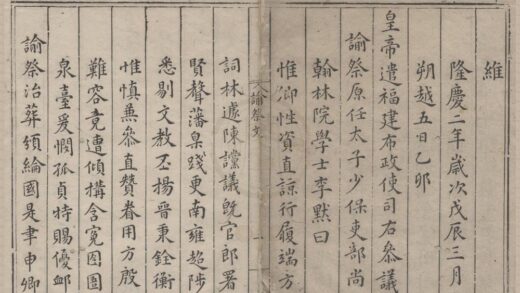 維
隆慶二年歲次戊辰三月
朔越五日乙卯
皇帝遣福建布政使司右叅議
諭祭原任太子少保吏部尚
翰林院學士李默曰
惟卿性資直諒行履端方
諭祭文
詞林遽陳讜議旣官郎署
賢聲藩臬踐更南雍超陟
悉剔文教丕揚晉秉銓衡
惟慎兼叅直贊眷用方殷
難容竟遭傾構含寃囹圄
泉臺爰憫孤貞特賜優卹
諭祭治葬頒綸國是聿申卿